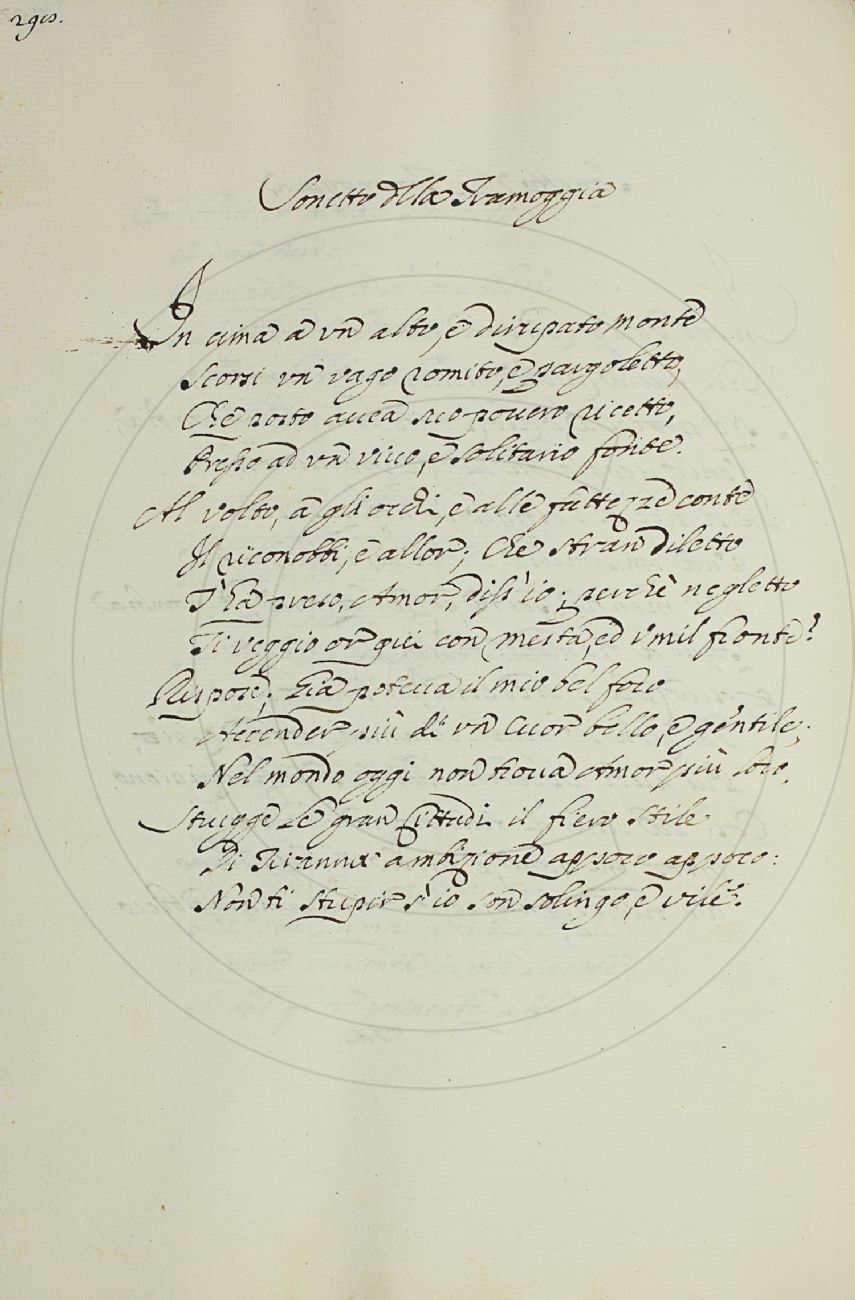 Sonetto della Tramoggia
In cima a vn alto, e dirupato monte
Scorsi vn vago romito, e pargoletto,
Che posto auea suo pouero ricetto,
Presso ad vn viuo, e solitario fonte.
Al volto, a gli occhi, e alle fattezze conte
Il riconobbi, e allor; Che stran diletto
T'ha preso, Amor, diss'io; perchè negletto
Ti veggio or qui con mesta, ed vmil fronte?
Rispose; Già poteua il mio bel foco
Accender più d'vn Cuor bello, e gentile;
Nel mondo oggi non troua Amor più loco,
Strugge le gran Cittadi il fiero stile
Di Tiranna ambizione appoco appoco:
Non ti stupir s'io son solingo, e vile.